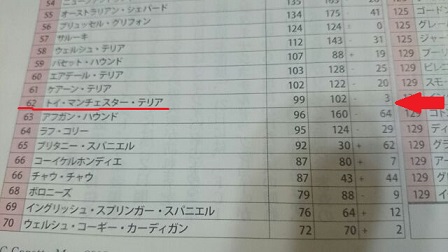 54
55 オーストラリアン・シェパード 134 175 - 41
56 ブリュッセル・グリフォン 124 124 + 0
57 サルーキ 112 143 - 31
58 ウェルシュ・テリア 107 88 + 19
59 バセット・ハウンド 103 128 - 25
60 エアデール・テリア 103
61 ケアーン・テリア 102 122 - 20
62 トイ・マンチェスター・テリア 99 102 - 3
63 アフガン・ハウンド 96 160 - 64
64 ラフ・コリー 95 124 - 29
65 ブリタニー・スパニエル 92 30 + 62
66 コーイケルホンディエ 87 80 + 7
66 チャウ・チャウ 87 43 + 44
68 ボロニーズ 79 88 - 9
69 イングリッシュ・スプリンガー・スパニエル 76 64 + 12
70 ウェルシュ・コーギー・カーディガン 72 70 + 2
125
125
129
129
129
129
129
129
129